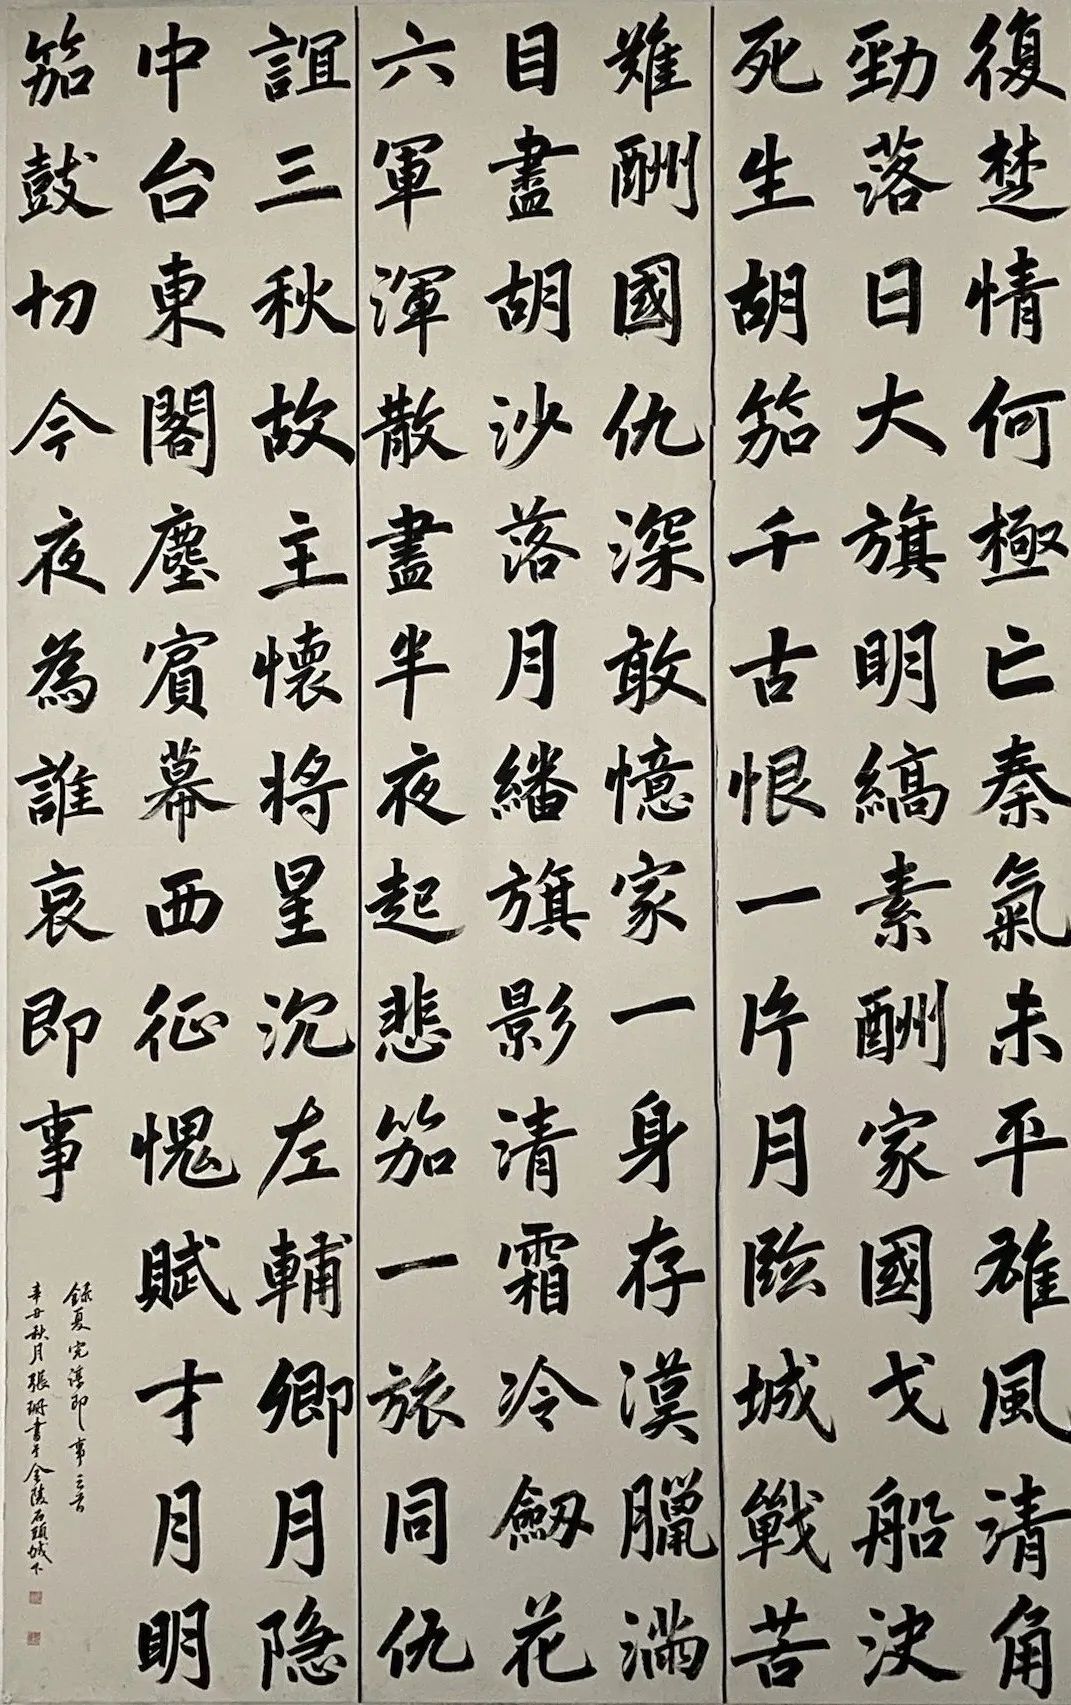 復楚情何極亡秦氣未平雄風清角
勁落日大旗明縞素酬家國戈船決
死生胡笳千古恨一片月臨城戰苦
難酬國仇深敢憶家一身存漠臘滿
目盡胡沙落月繙旗影清霜冷劒花
六軍渾散盡半夜起悲笳一旅同仇
誼三秋故主懷將星沉左輔卿月隐
中台東閣塵賓幕西征愧賦才月明
笳鼓切今夜為誰哀即事
錄夏完淳即事三首
辛丑秋月張珊書于金陵石頭城下